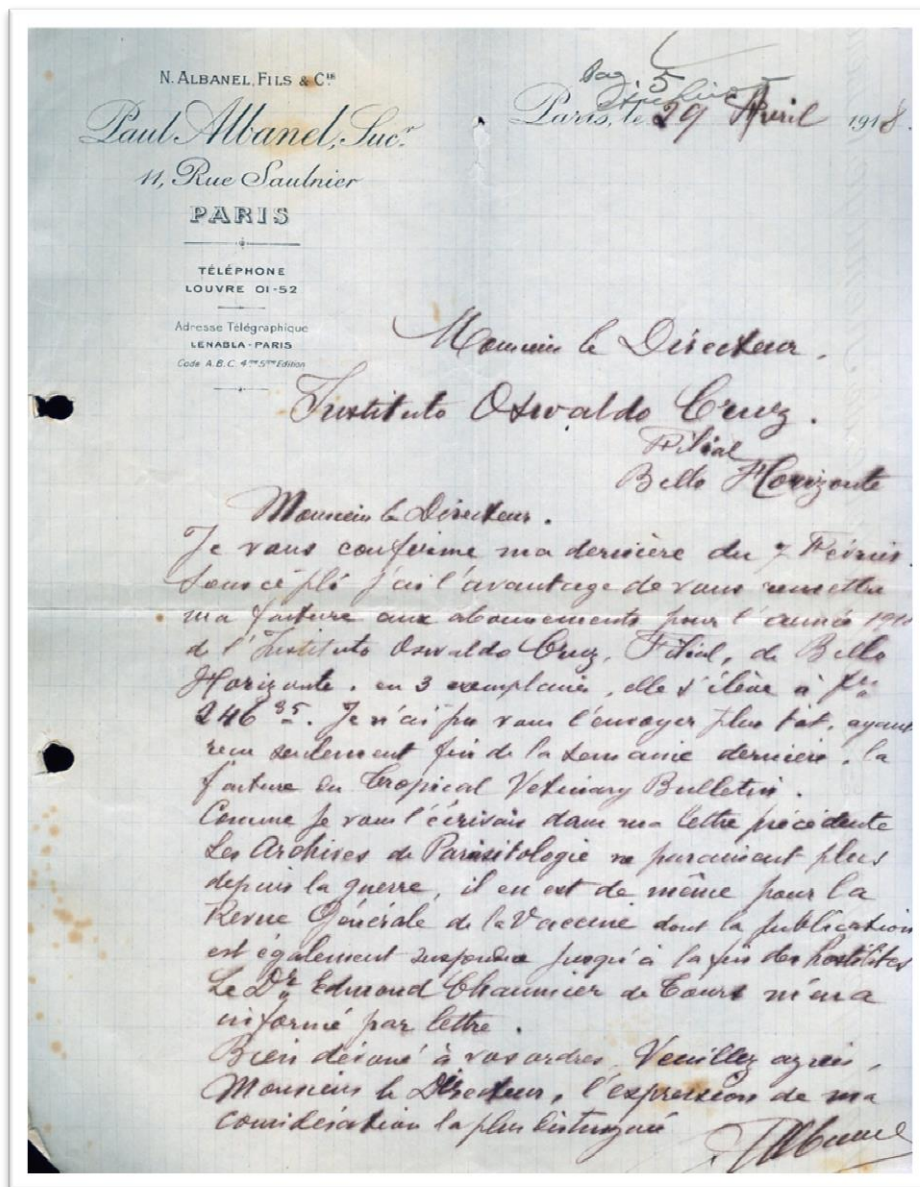 N. ALBANEL, FILS & Cie
Paul Albanel, Sucr
11, Rue Saulnier
PARIS
TÉLÉPHONE
LOUVRE 01-52
Adresse Télégraphique
LENABLA-PARIS
Code A.B.C. 4me 5me Edition
5
Paris, le 29 Avril 1918
Monsieur le Directeur.
Instituto Oswaldo Cruz.
Filial
Bello Horizonte
Monsieur le Directeur.
Je vous confirme ma dernière du 7 Février
Sous ce pli j'ai l'avantage de vous remettre
ma facture aux abonnements pour l'année 1918
de l'Instituto Oswaldo Cruz, Filial, de Bello
Horizonte. en 3 exemplaires, elle s'élève à frs
246 35. Je n'ai pu vous l'envoyer plus tôt, ayant
recu seulement fin de la semaine dernière, la
facture du Tropical Veterinary Bulletin.
Comme je vous l'écrivais dans ma lettre précédente
Les Archives de Parasitologie ne paraissent plus
depuis la guerre, il en est de même pour la
Revue Générale de la Vaccine dont la publication
est également suspendue jusqu'à la fin des hostilités
Le Dr Edmond Chaumier de Tours m'en a
informé par lettre.
Bien dévoué à vos ordres, Veuillez agréer,
Monsieur le Directeur, l'expression de ma
considération la plus distinguée
Albanel